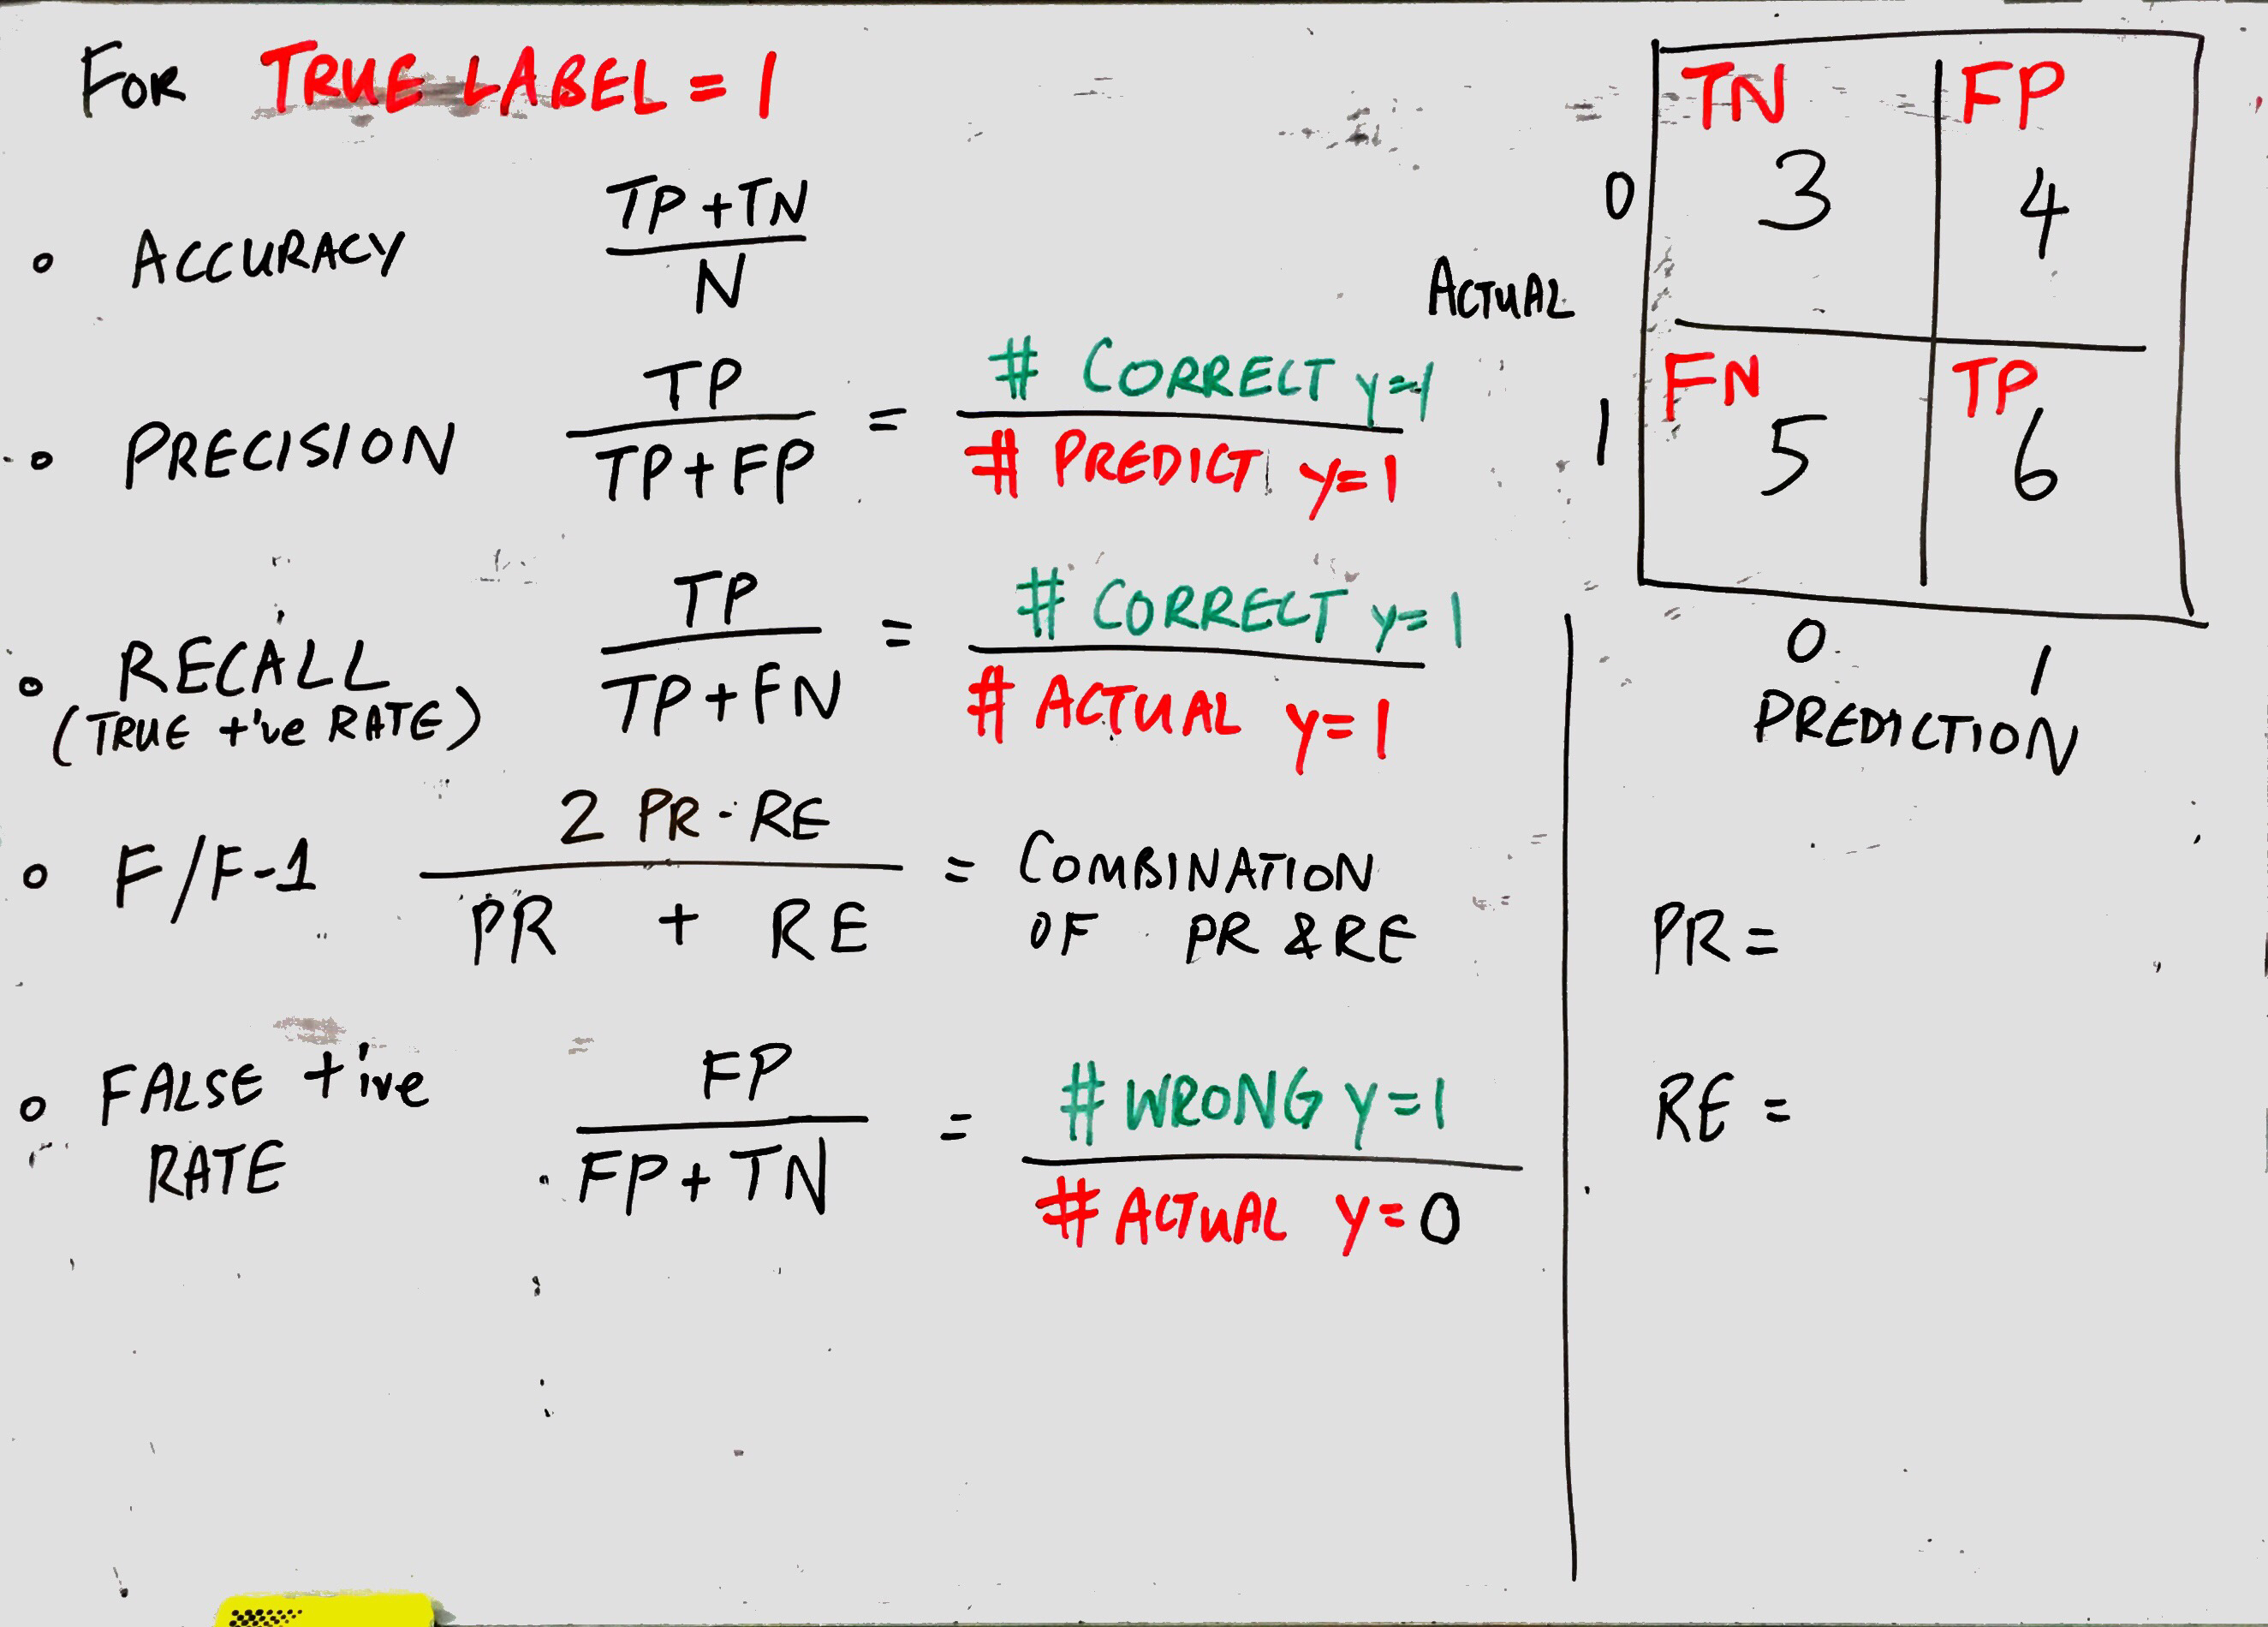 FOR TRUE LABEL = 1
• ACCURACY TP + TN / N
• PRECISION TP / TP + FP = # CORRECT y=1 / # PREDICT y=1
• RECALL (TRUE +'ve RATE) TP / TP + FN = # CORRECT y=1 / # ACTUAL y=1
• F/F-1 2 PR · RE / PR + RE = COMBINATION OF PR & RE
• FALSE +'ive RATE FP / FP + TN = # WRONG y=1 / # ACTUAL y=0
TN FP
0 3 4
ACTUAL
FN TP
1 5 6
0 1
PREDICTION
PR =
RE =